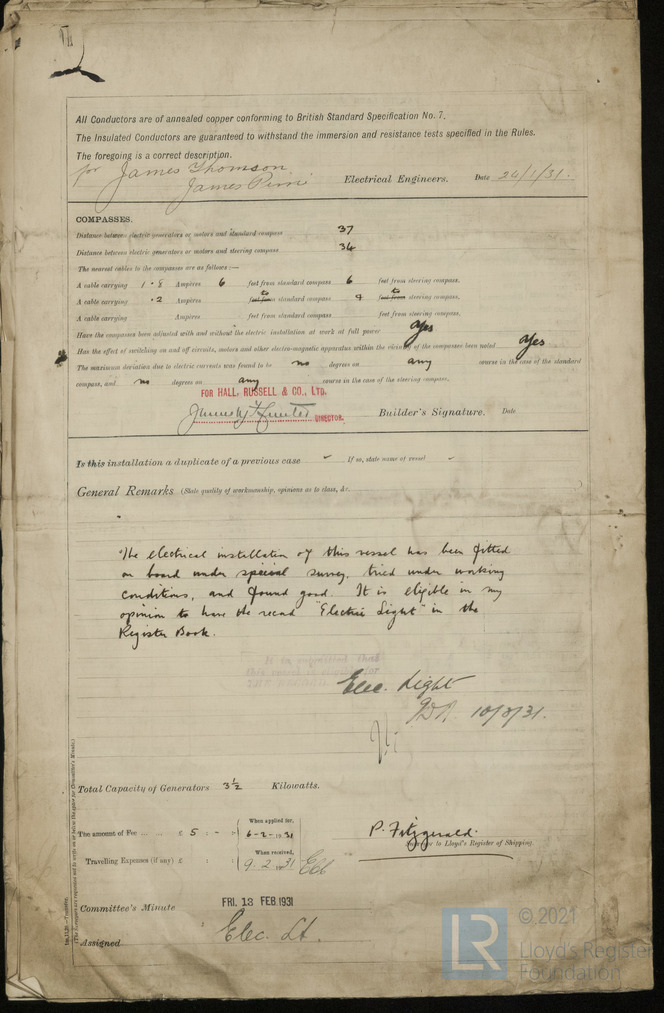 All Conductors are of annealed copper conforming to British Standard Specification No. 7.
The Insulated Conductors are guaranteed to withstand the immersion and resistance tests specified in the Rules.
The foregoing is a correct description.
for James Thomson
James Pirie Electrical Engineers. Date 24/1/31.
COMPASSES.
Distance between electric generators or motors and standard compass 37
Distance between electric generators or motors and steering compass 34
The nearest cables to the compasses are as follows:—
A cable carrying 1.8 Ampères 6 feet from standard compass 6 feet from steering compass.
A cable carrying .2 Ampères feet from to standard compass 4 feet from to steering compass.
A cable carrying Ampères feet from standard compass feet from steering compass.
Have the compasses been adjusted with and without the electric installation at work at full power Yes
Has the effect of switching on and off circuits, motors and other electro-magnetic apparatus within the vicinity of the compasses been noted Yes
The maximum deviation due to electric currents was found to be no degrees on any course in the case of the standard
compass, and no degrees on any course in the case of the steering compass.
FOR HALL, RUSSELL & CO., LTD.
DIRECTOR. Builder's Signature. Date
Is this installation a duplicate of a previous case ✓ If so, state name of vessel ✓
General Remarks (State quality of workmanship, opinions as to class, &c.
The electrical installation of this vessel has been fitted
on board under special survey, tried under working
conditions, and found good. It is eligible in my
opinion to have the record "Electric Light" in the
Register Book.
It is submitted that
this vessel is eligible for
Elec. Light
10/2/31.
Total Capacity of Generators 3½ Kilowatts.
The amount of Fee ... £ 5 : - : When applied for, 6-2-1931
Travelling Expenses (if any) £ : : When received, 9.2.1931
P. Fitzgerald.
Surveyor to Lloyd's Register of Shipping.
Committee's Minute FRI. 13 FEB 1931
Assigned Elec. Lt.
(The Surveyors are requested not to write on or below the space for Committee's Minute.)
LR © 2021
Lloyd's Register
Foundation